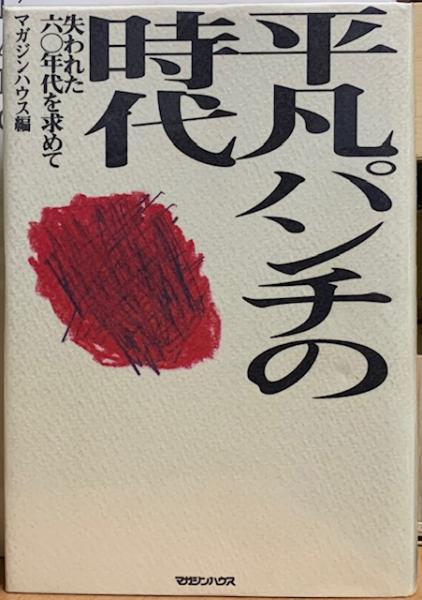 平凡パンチの
時代
失われた
六〇年代を求めて
マガジンハウス編
マガジンハウス